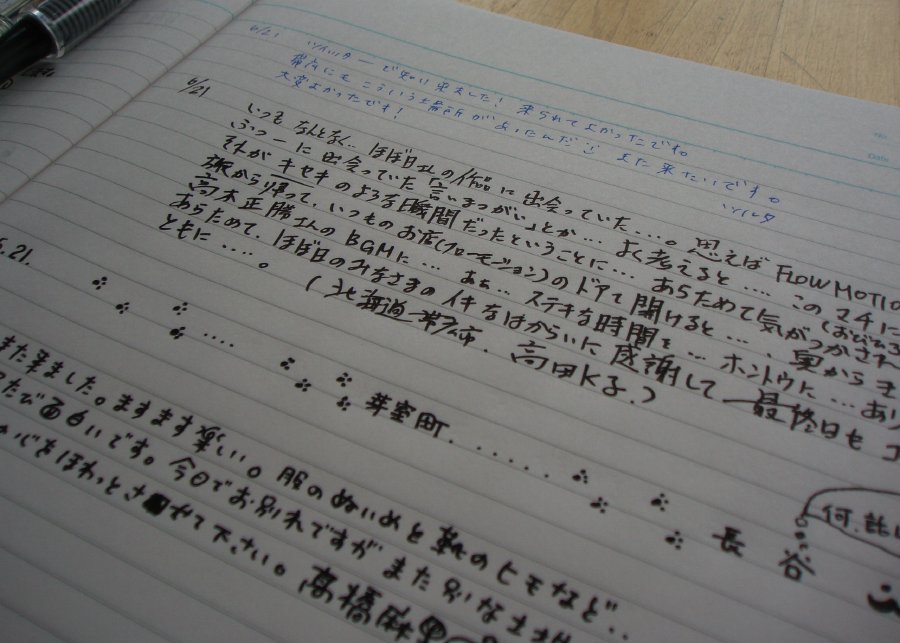 6/21 ツイッターで知り来ました! 来られてよかったです。
帯広にもこういう場所があったんだ また来たいです。
大変よかったです!
6/21
いつも なんとなく… ほぼ日さんの作品に出会っていた…。思えば FLOWMOTIO
ふつーに出会っていた「言いまつがい」とか… よく考えると… このマチに
それが キセキのような瞬間だったということに… あらためて気がつかされ
旅から帰って、いつものお店(フローモーション)のドアを開けると… 、奥から
高木正勝さんの BGMに… あぁ… ステキな時間を… ホントウに… あり
あらためて、ほぼ日のみなさまの イキなはからいに感謝して 最終日も
ともに…。
(北海道帯広市. 高田K子.)
6.21.
芽室町. 長谷
また来ました。ますます楽しい。服のぬいめと靴のヒモなど..
たび面白いです。今日でお別れですが また別な土地
心をほわっとさせて下さい。高橋麻里